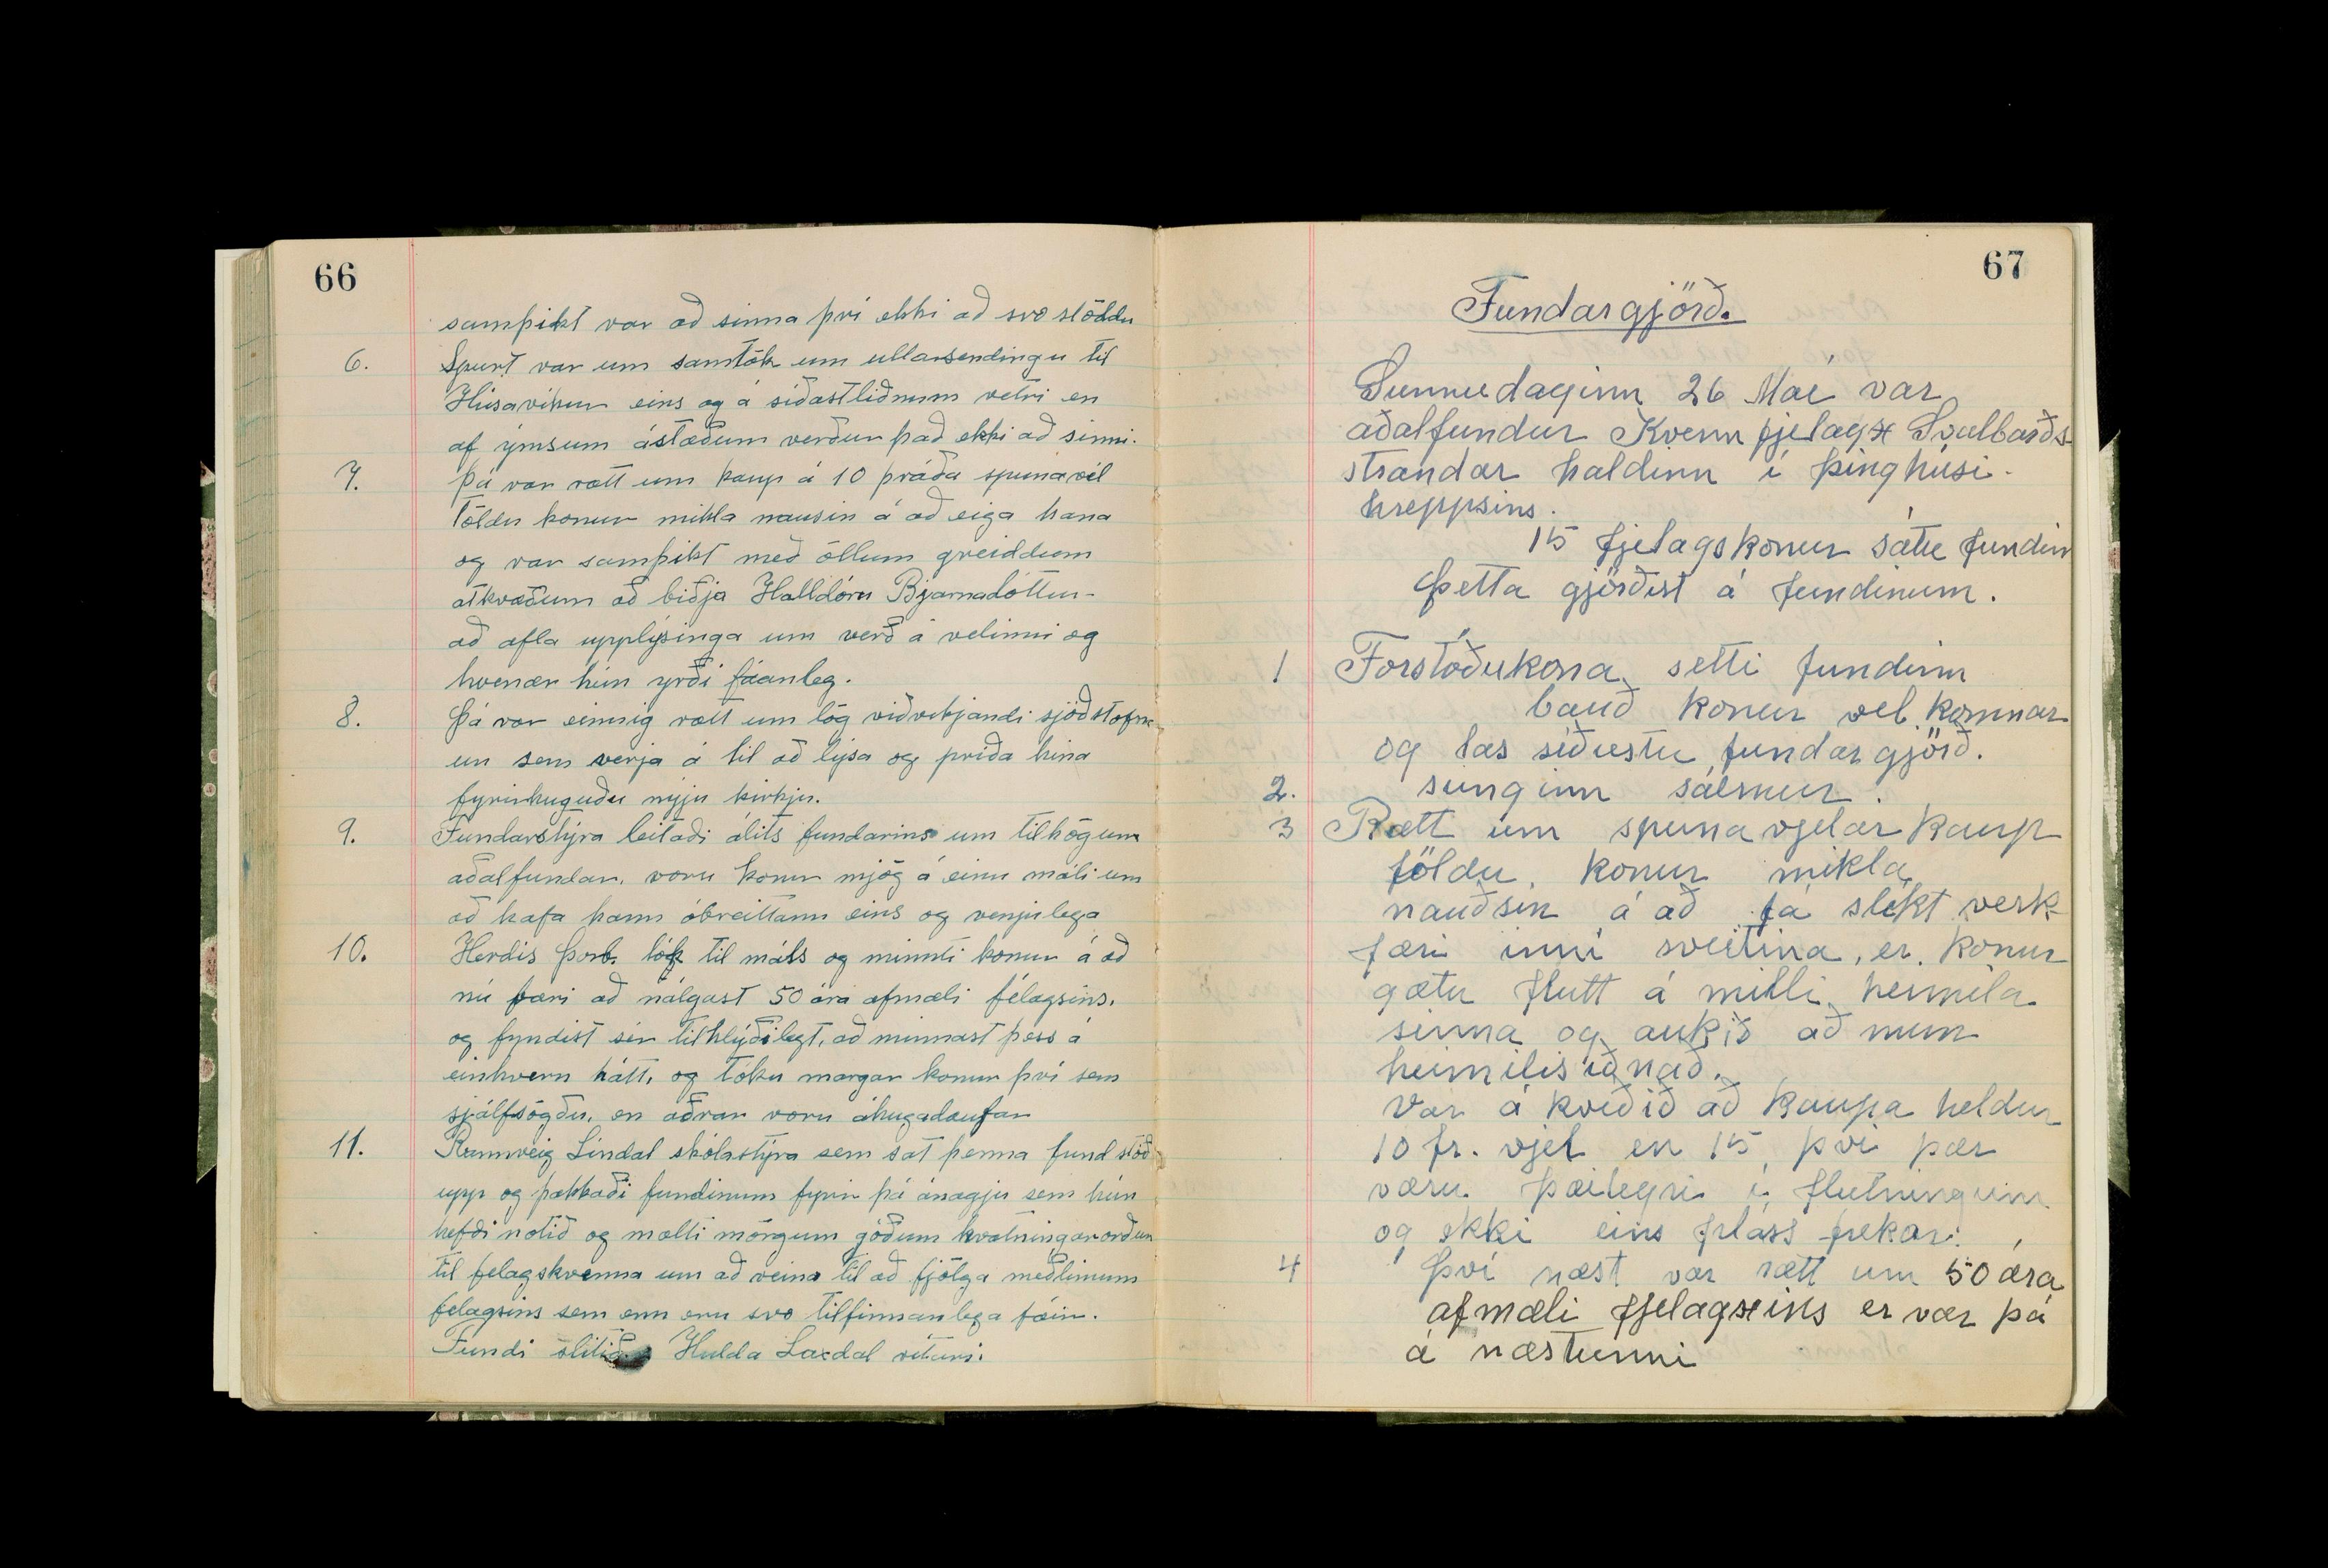 66
samþikt var að sinna því ekki að svo stöddu
6. Spurt var um samtök um ullarsendingu til
Húsavíkur eins og á síðastliðnum vetri en
af ýmsum ástæðum verður það ekki að sinni.
7. Þá var rætt um kaup á 10 þráða spunavél
Töldu konur mikla nausin á að eiga hana
og var samþikt með öllum greiddum
atkvæðum að biðja Halldóru Bjarnadóttur-
að afla upplýsinga um verð á velinni og
hvenær hún yrði fáanleg.
8. Þá var einnig rætt um lög viðvikjandi sjóðstofn-
un sem verja á til að lýsa og príða hina
fyrirhuguðu nýju kirkju.
9. Fundarstýra leitaði álits fundarins um tilhögun
aðalfundar, voru konur mjög á einu máli um
að hafa hann óbreittann eins og venjulega
10. Herdís Þorb. tók til máls og minnti konur á að
nú færi að nálgast 50 ára afmæli félagsins.
og fyndist sér tilhlýðilegt, að minnast þess á
einhvern hátt, og tóku margar konur því sem
sjálfsögðu, en aðrar voru áhugadaufar
11. Rannveig Líndal skólastýra sem sat þenna fund stóð
upp og þakkaði fundinum fyrir þá ánægju sem hún
hefði notið og mælti mörgum góðum hvatningarorðum
til felagskvenna um að reina til að fjölga meðlimum
felagsins sem enn eru svo tilfinnanlega fáir.
Fundi slitið. Hulda Laxdal ritari.
67
Fundargjörð.
Sunnudaginn 26 Maí var
aðalfundur Kvenn fjelags Svalbarðs
strandar haldinn í þinghúsi
hreppsins.
15 fjelagskonur sátu fundin
Þetta gjörðist á fundinum.
1 Forstöðukona setti fundinn
bauð konur vel komnar
og las síðustu fundargjörð.
2. sunginn sálmur.
3 Rætt um spuna vjelar kaup
töldu konur mikla
nauðsin á að fá slíkt verk
færi inní sveitina, er konur
gætu flutt á milli heimila
sinna og aukið að mun
heimilisiðnað.
Var á kveðið að kaupa heldur
10 þr. vjel en 15, því þær
væru þægilegri í flutningum
og ekki eins pláss frekar.
4 Því næst var rætt um 50 ára
afmæli fjelagsins er var þá
á næstunni